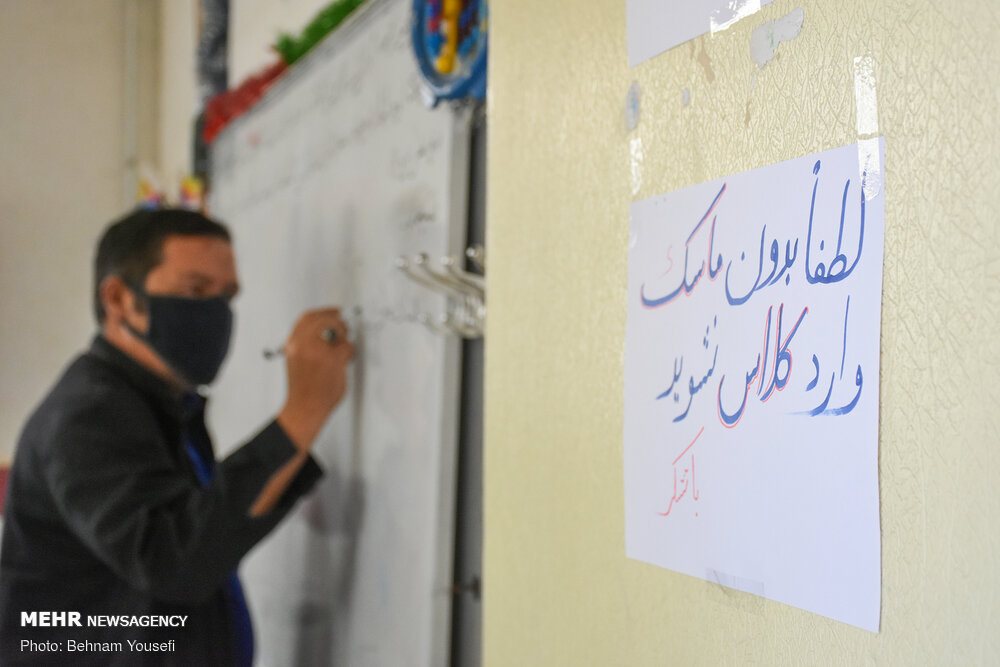 لطفاً بدون ماسک
وارد کلاس نشوید
با تشکر
MEHR NEWSAGENCY
Photo: Behnam Yousefi